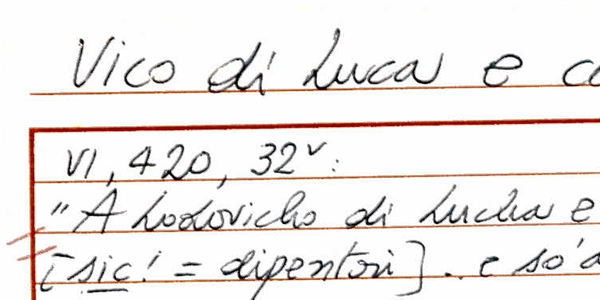 Vico di Luca e
VI, 420, 32v:
"A Lodovicho di Lucha e
[sic! = dipentori]. e so'